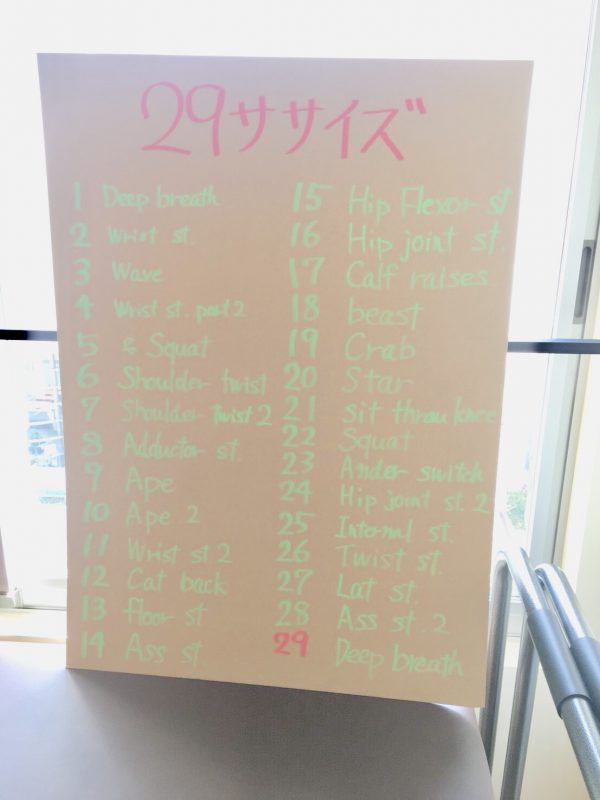 29ササイズ
1 Deep breath
2 Wrist st.
3 Wave
4 Wrist st. part 2
5 & Squat
6 Shoulder twist
7 Shoulder Twist 2
8 Adductor st.
9 Ape
10 Ape 2
11 Wrist st 2
12 Cat back
13 floor st
14 Ass st
15 Hip Flexor st
16 Hip joint st.
17 Calf raises
18 beast
19 Crab
20 Star
21 sit throu knee
22 Squat
23 Ander switch
24 Hip joint st. 2
25 Internal st.
26 Twist st.
27 Lat st.
28 Ass st. 2
29 Deep breath